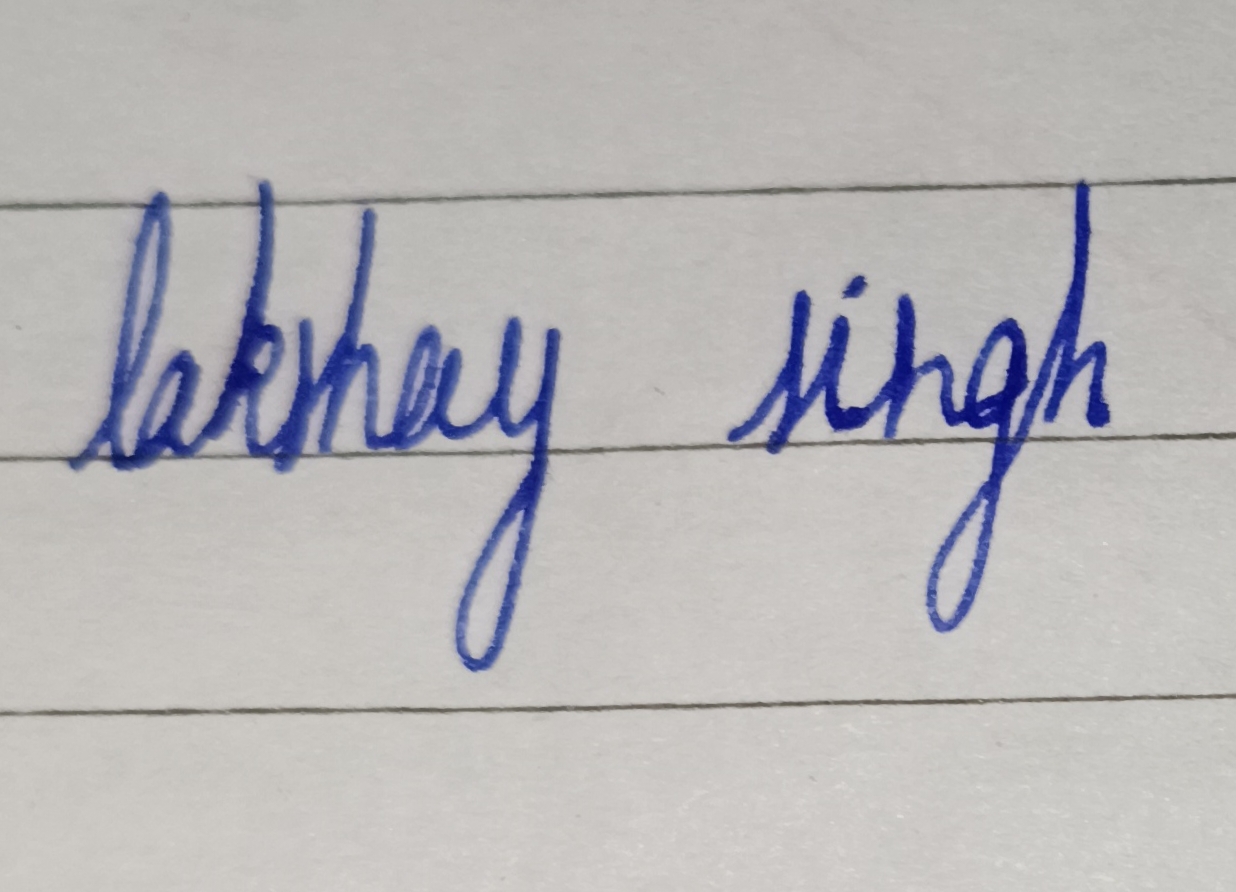 lakshay singh